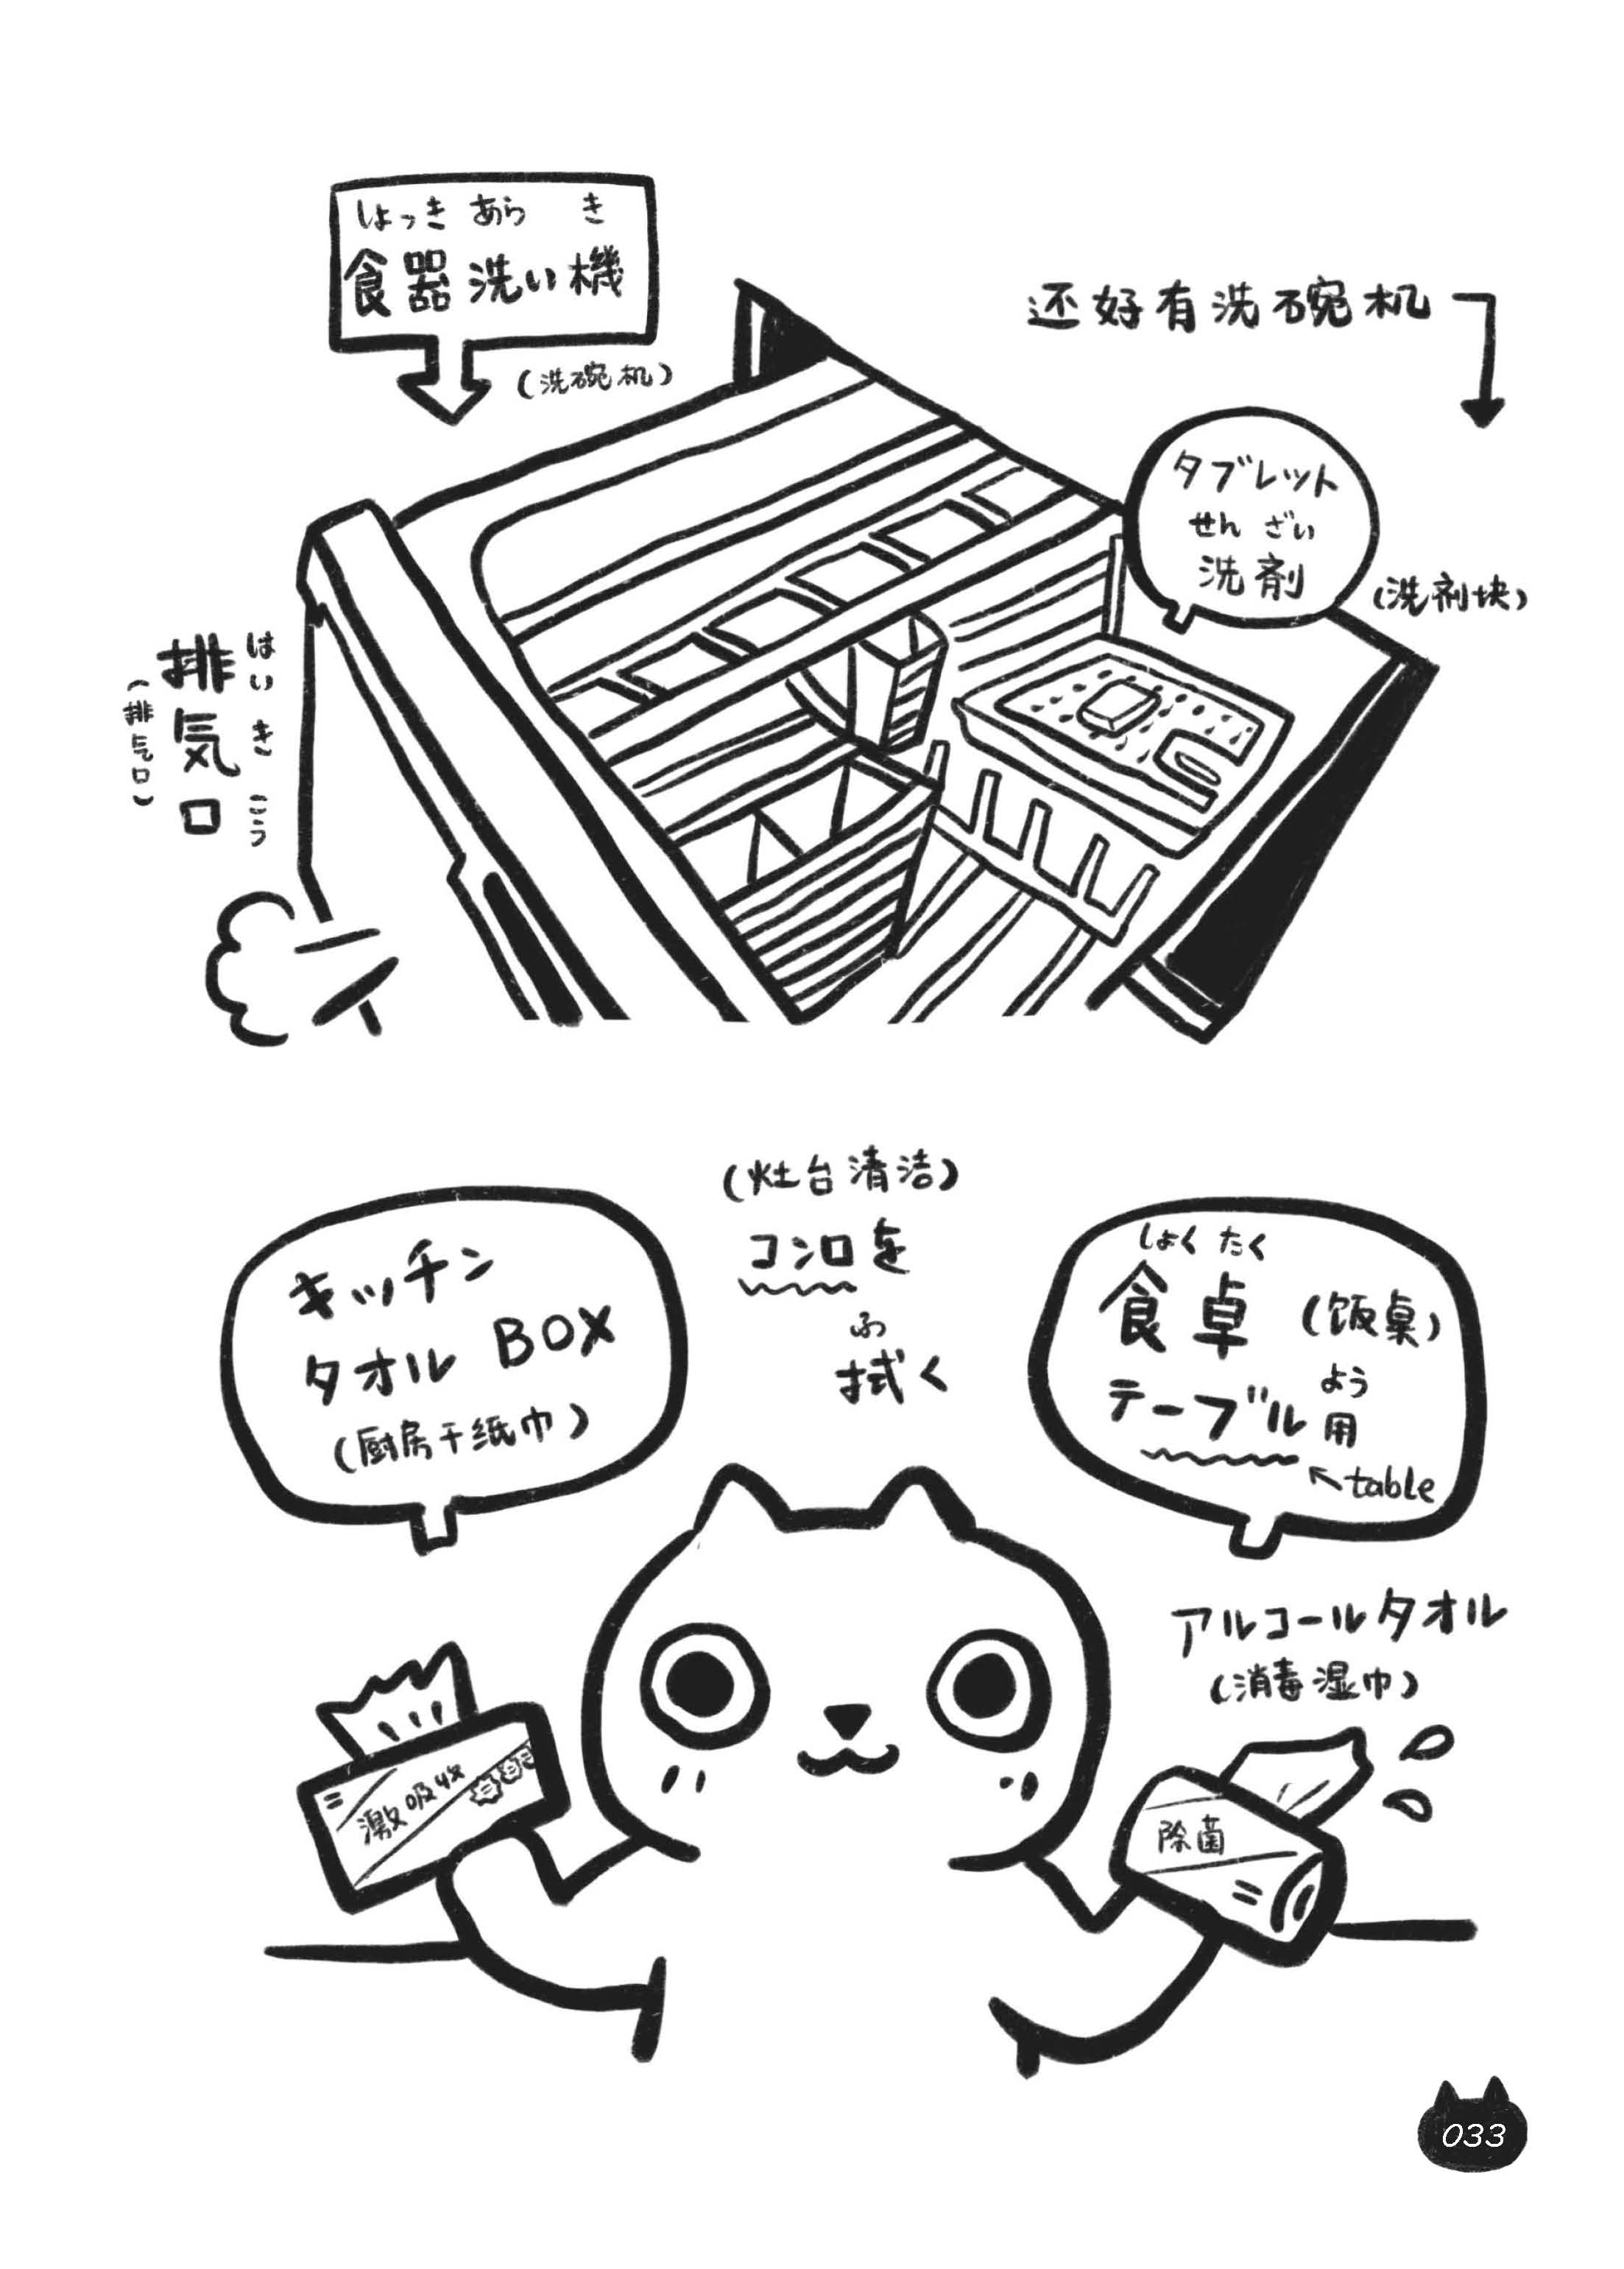 しょっき あら き
食器洗い機
(洗碗机)
还好有洗碗机
タブレット
せんざい
洗剤
(洗剂块)
はいきこう
排気口
(排气口)
(灶台清洁)
コンロを
ふ
拭く
キッチン
タオル BOX
(厨房干纸巾)
しょくたく
食卓 (饭桌)
よう
テーブル用
table
アルコールタオル
(消毒湿巾)
激吸收
除菌
033